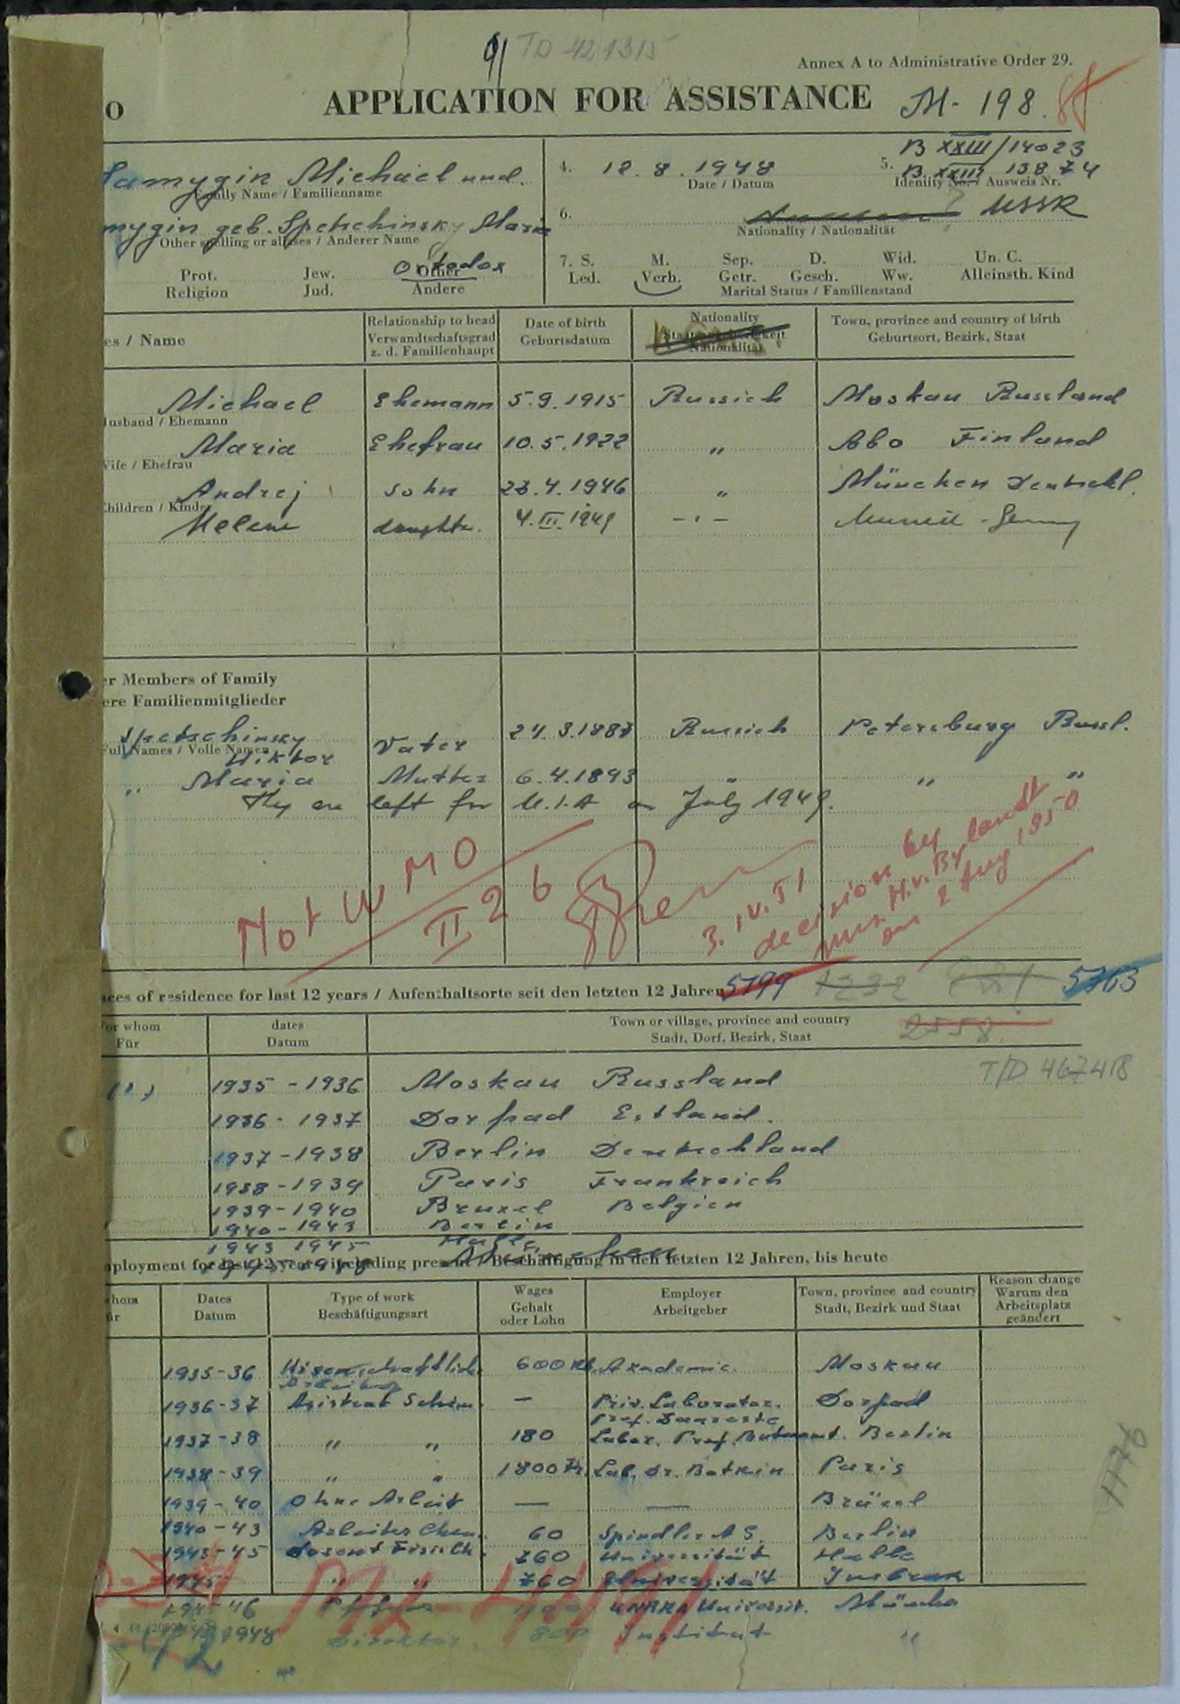 TD 421315
Annex A to Administrative Order 29.
O APPLICATION FOR ASSISTANCE M- 198.
amygin Michael und. 4. 12.8.1948 5. B XXIII/14023
B. XXIII 138 74
Family Name / Familienname Date / Datum Identity No. / Ausweis Nr.
mygin geb. Spetschinsky Maria 6. USSR
Other spelling or aliases / Anderer Name Nationality / Nationalität
Prot. Jew. Other Ortodox 7. S. M. Sep. D. Wid. Un. C.
Religion Jud. Andere Led. Verh. Getr. Gesch. Ww. Alleinsth. Kind
Marital Status / Familienstand
es / Name Relationship to head Date of birth Nationality Town, province and country of birth
Verwandtschaftsgrad Geburtsdatum Geburtsort, Bezirk, Staat
z. d. Familienhaupt Nationalität
Michael Ehemann 5.9.1915 Russich Moskau Russland
Husband / Ehemann
Maria Ehefrau 10.5.1922 " Abo Finland
Wife / Ehefrau
Andrej sohn 23.4.1946 " München Deutschl.
Children / Kinder
Helene daughter. 4.III.1949 - " -
er Members of Family
ere Familienmitglieder
Spetschinsky Vater 24.3.1887 Russich Petersburg Russl.
Full Names / Volle Namen
Viktor
" Maria Mutter 6.4.1893 " " "
They are left for U.S.A on July 1949.
Not W MO
II 26
3.IV.51
decision by
Miss H.v. Bylandt
on 2 Aug 1950
aces of residence for last 12 years / Aufenthaltsorte seit den letzten 12 Jahren 5199 1232 5763
For whom dates Town or village, province and country
Für Datum Stadt, Dorf, Bezirk, Staat 2558
T/D 467418
1935 - 1936 Moskau Russland
1936 - 1937 Dorpad Estland.
1937 - 1938 Berlin Deutschland
1938 - 1939 Paris Frankreich
1939 - 1940 Bruxel Belgien
1940 - 1943 Berlin
1943 1945 Halle
München
ployment for last 12 years including present / Beschäftigung in den letzten 12 Jahren, bis heute
whom Dates Type of work Wages Employer Town, province and country Reason change
ür Datum Beschäftigungsart Gehalt Arbeitgeber Stadt, Bezirk und Staat Warum den
oder Lohn Arbeitsplatz
geändert
1935-36 Wissenschaftlich. 600 Rb. Akademie. Moskau
Arbeiter
1936-37 Asistent Schem. — Priv. Laborator. Dorpad
Prof.
1937-38 " " 180 Labor. Prof. Berlin
1938-39 " " 1800 Fr. Lab. Dr. Botkin Paris
1939-40 Ohne Arbeit — — Brüssel
1940-43 Arbeiter Chem. 60 Spindler A.S. Berlin
1943-45 Dosent 260 Universität Halle
1945 " " 260 Universität Insbruk
1945-46 UNRRA Universit. München
1948 Direktor 800 Institut "